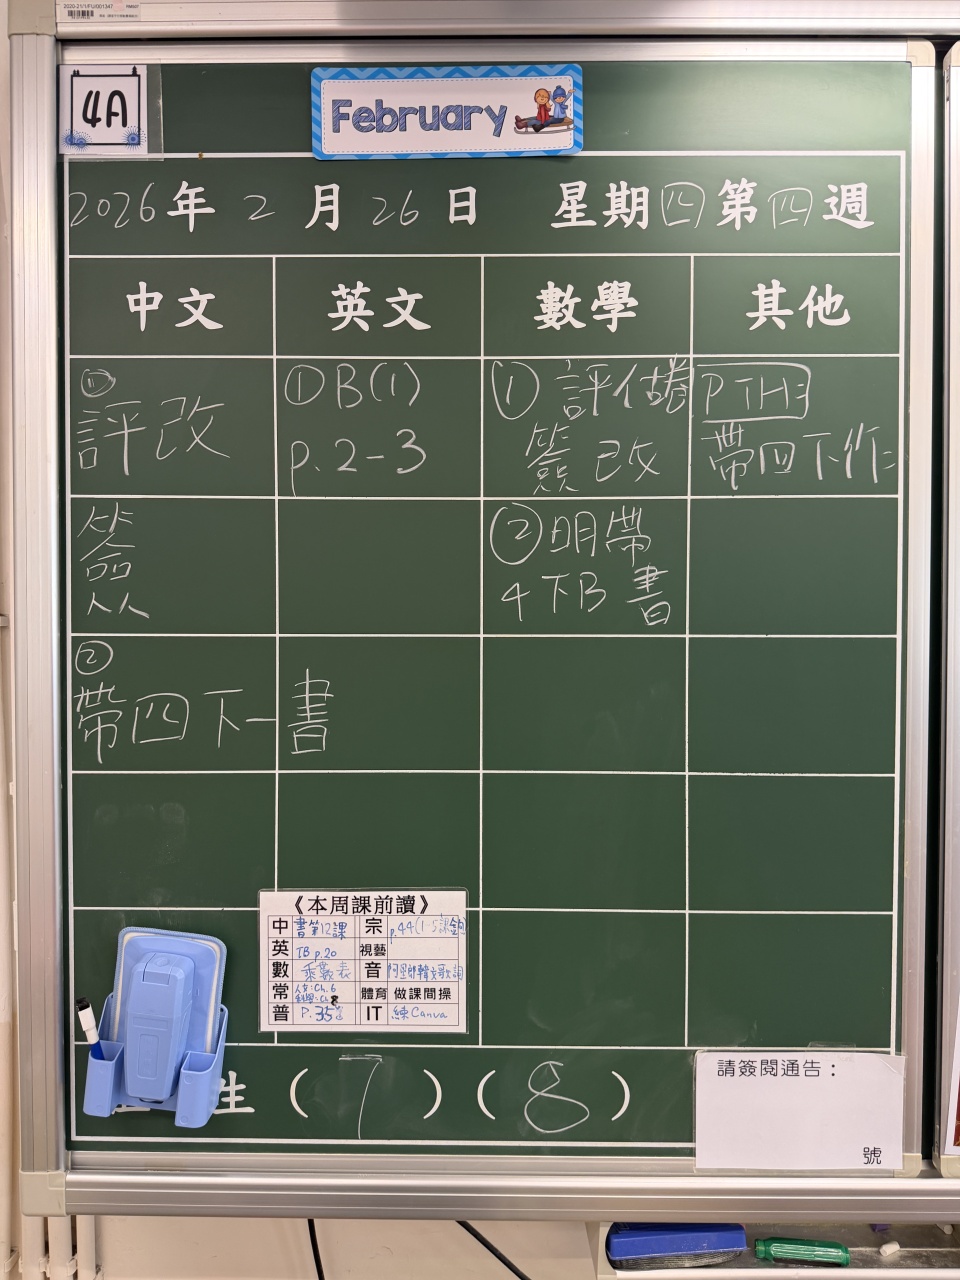 2020-21/1/FU/001347
4A
February
2026年 2 月 26 日 星期四第四週
中文 英文 數學 其他
① 評改
簽
② 帶四下一書
① B(1)
p. 2-3
① 評估卷
簽改
② 明帶
4下B 書
PTH:
帶四下作
《本周課前讀》
中 書第12課 宗 p.44(1-5課金句)
英 TB p.20 視藝
數 乘數表 音 阿里郎韓文歌詞
常 人文:Ch.6
科學:Ch8 體育 做課間操
普 P.35 IT 練Canva
生 ( 7 ) ( 8 )
請簽閱通告：
號